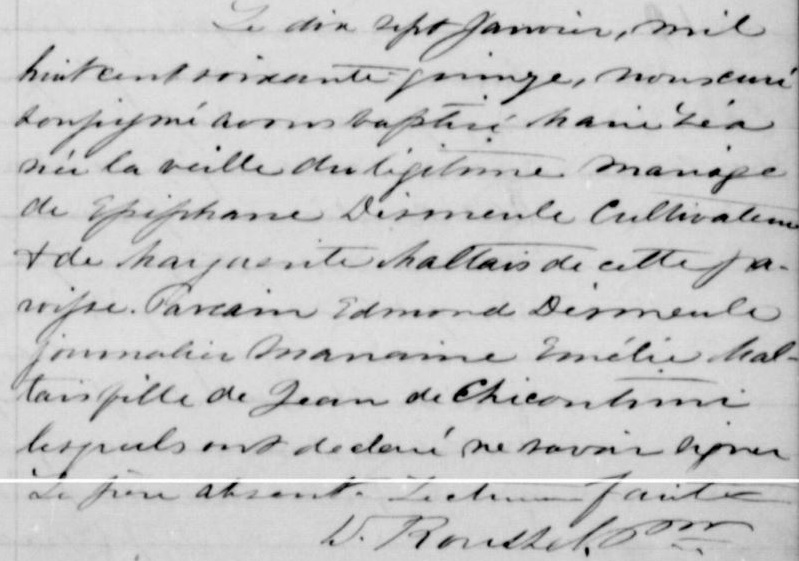 Le dix sept Janvier, mil
huit cent soixante quinze, nous curé
soussigné avons baptisé Marie Léa
née la veille du légitime mariage
de Epiphane Desmeule Cultivateur
& de Marguerite Maltais de cette pa-
roisse. Parrain Edmond Desmeule
journalier Marraine Emélie Mal-
tais fille de Jean de Chicoutimi
lesquels ont declaré ne savoir signer
Le père absent. Lecture faite
D. Roussel, Ptre